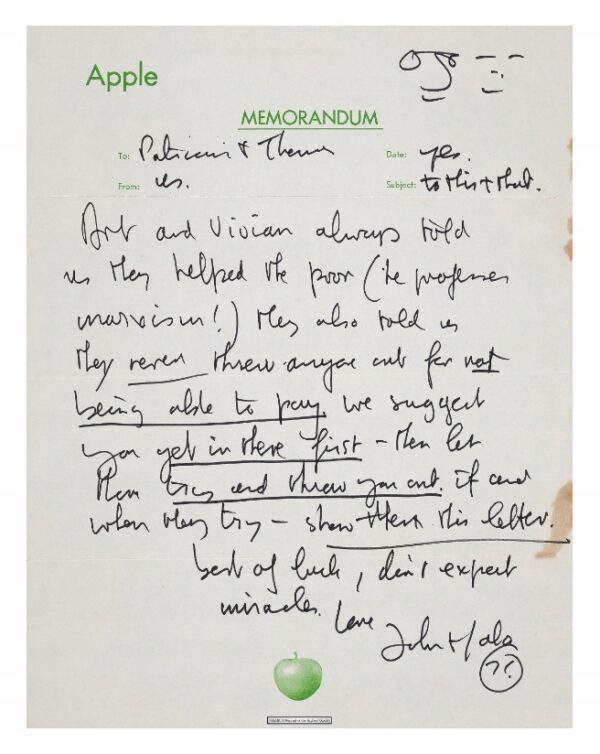 Apple
MEMORANDUM
To: & Date: yes.
From: us. Subject: to this + that.
Art and Vivian always told
us they helped the poor (he professes
marxism!) they also told us
they never threw anyone out for not
being able to pay. we suggest
you get in there first – then let
them try and throw you out. if and
when they try – show them this letter.
best of luck, don't expect
miracles. love
John +
??